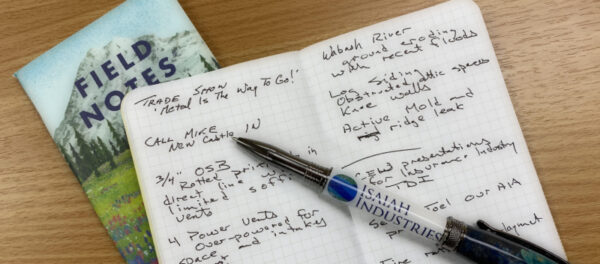 FIELD
NOTES
TRADE SHOW
'Metal Is The Way To Go!'
CALL MIKE
NEW Castle IN
3/4" OSB
Rotted in
direct line w/
limited soffit
vents
4 Power vents for
Over-powered
space and intake
Wabash River
ground eroding
with recent floods
Log Siding
Obstructed attic spaces
Knee walls
Active Mold and
ridge leak
presentations
for Insurance Industry
IDI
Our AIA
ISAIAH
INDUSTRIES